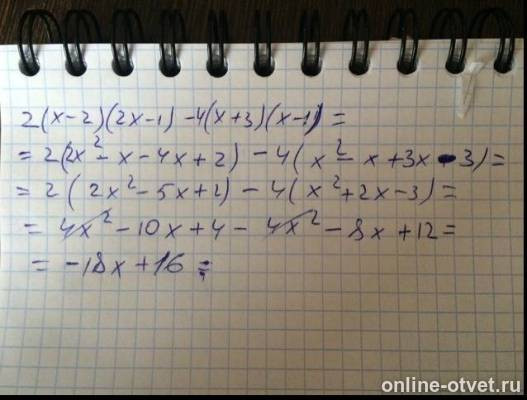 2(x-2)(2x-1) -4(x+3)(x-1) =
= 2(2x² - x - 4x + 2) - 4(x² - x + 3x - 3) =
= 2(2x² - 5x + 2) - 4(x² + 2x - 3) =
= 4x² - 10x + 4 - 4x² - 8x + 12 =
= -18x + 16 =
online-otvet.ru